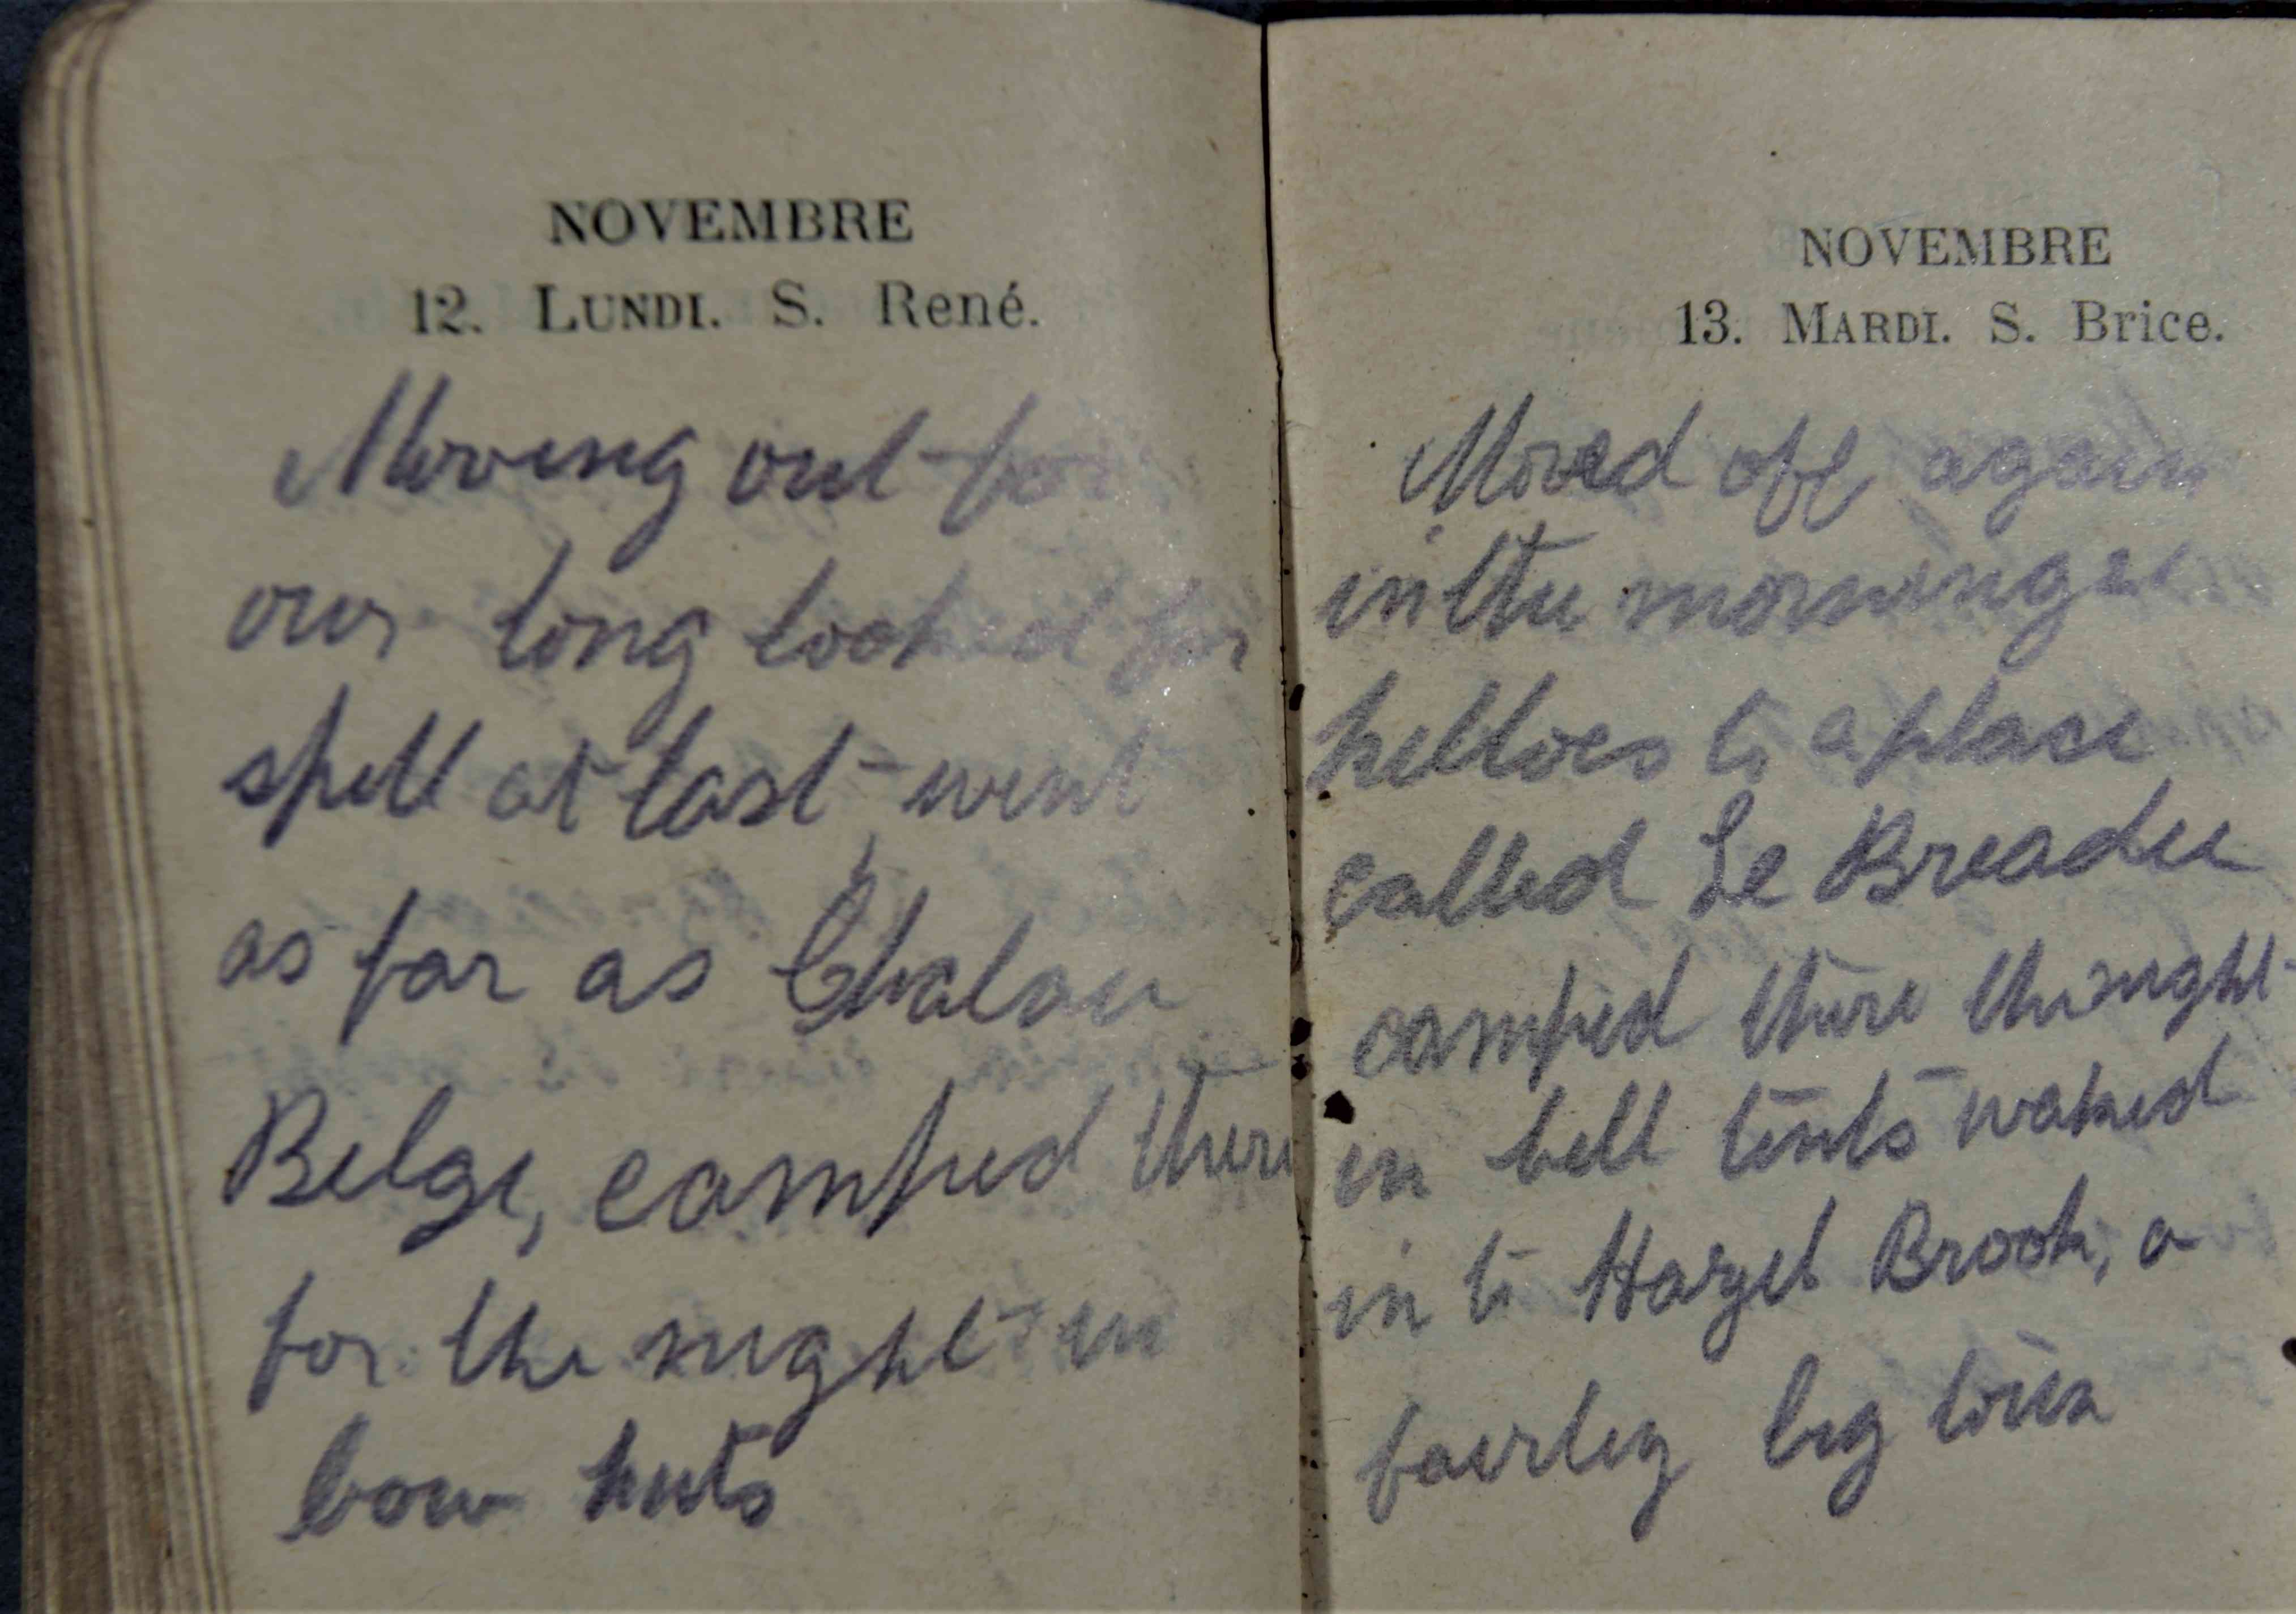 NOVEMBRE
12. LUNDI. S. René.
Moving out for
our long looked for
spell at last went
as far as Chalau
Belge, camped there
for the night in
bow huts
NOVEMBRE
13. MARDI. S. Brice.
Moved off again
in the morning
to a place
called Le Breadee
camped there the night
in bell tents waked
in to Hazel Brook, a
fairley big town